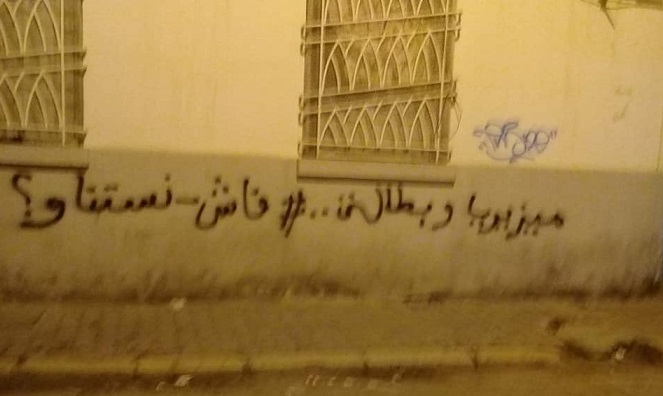 ميزيريا و بطالة.. #فاش-نستناو؟